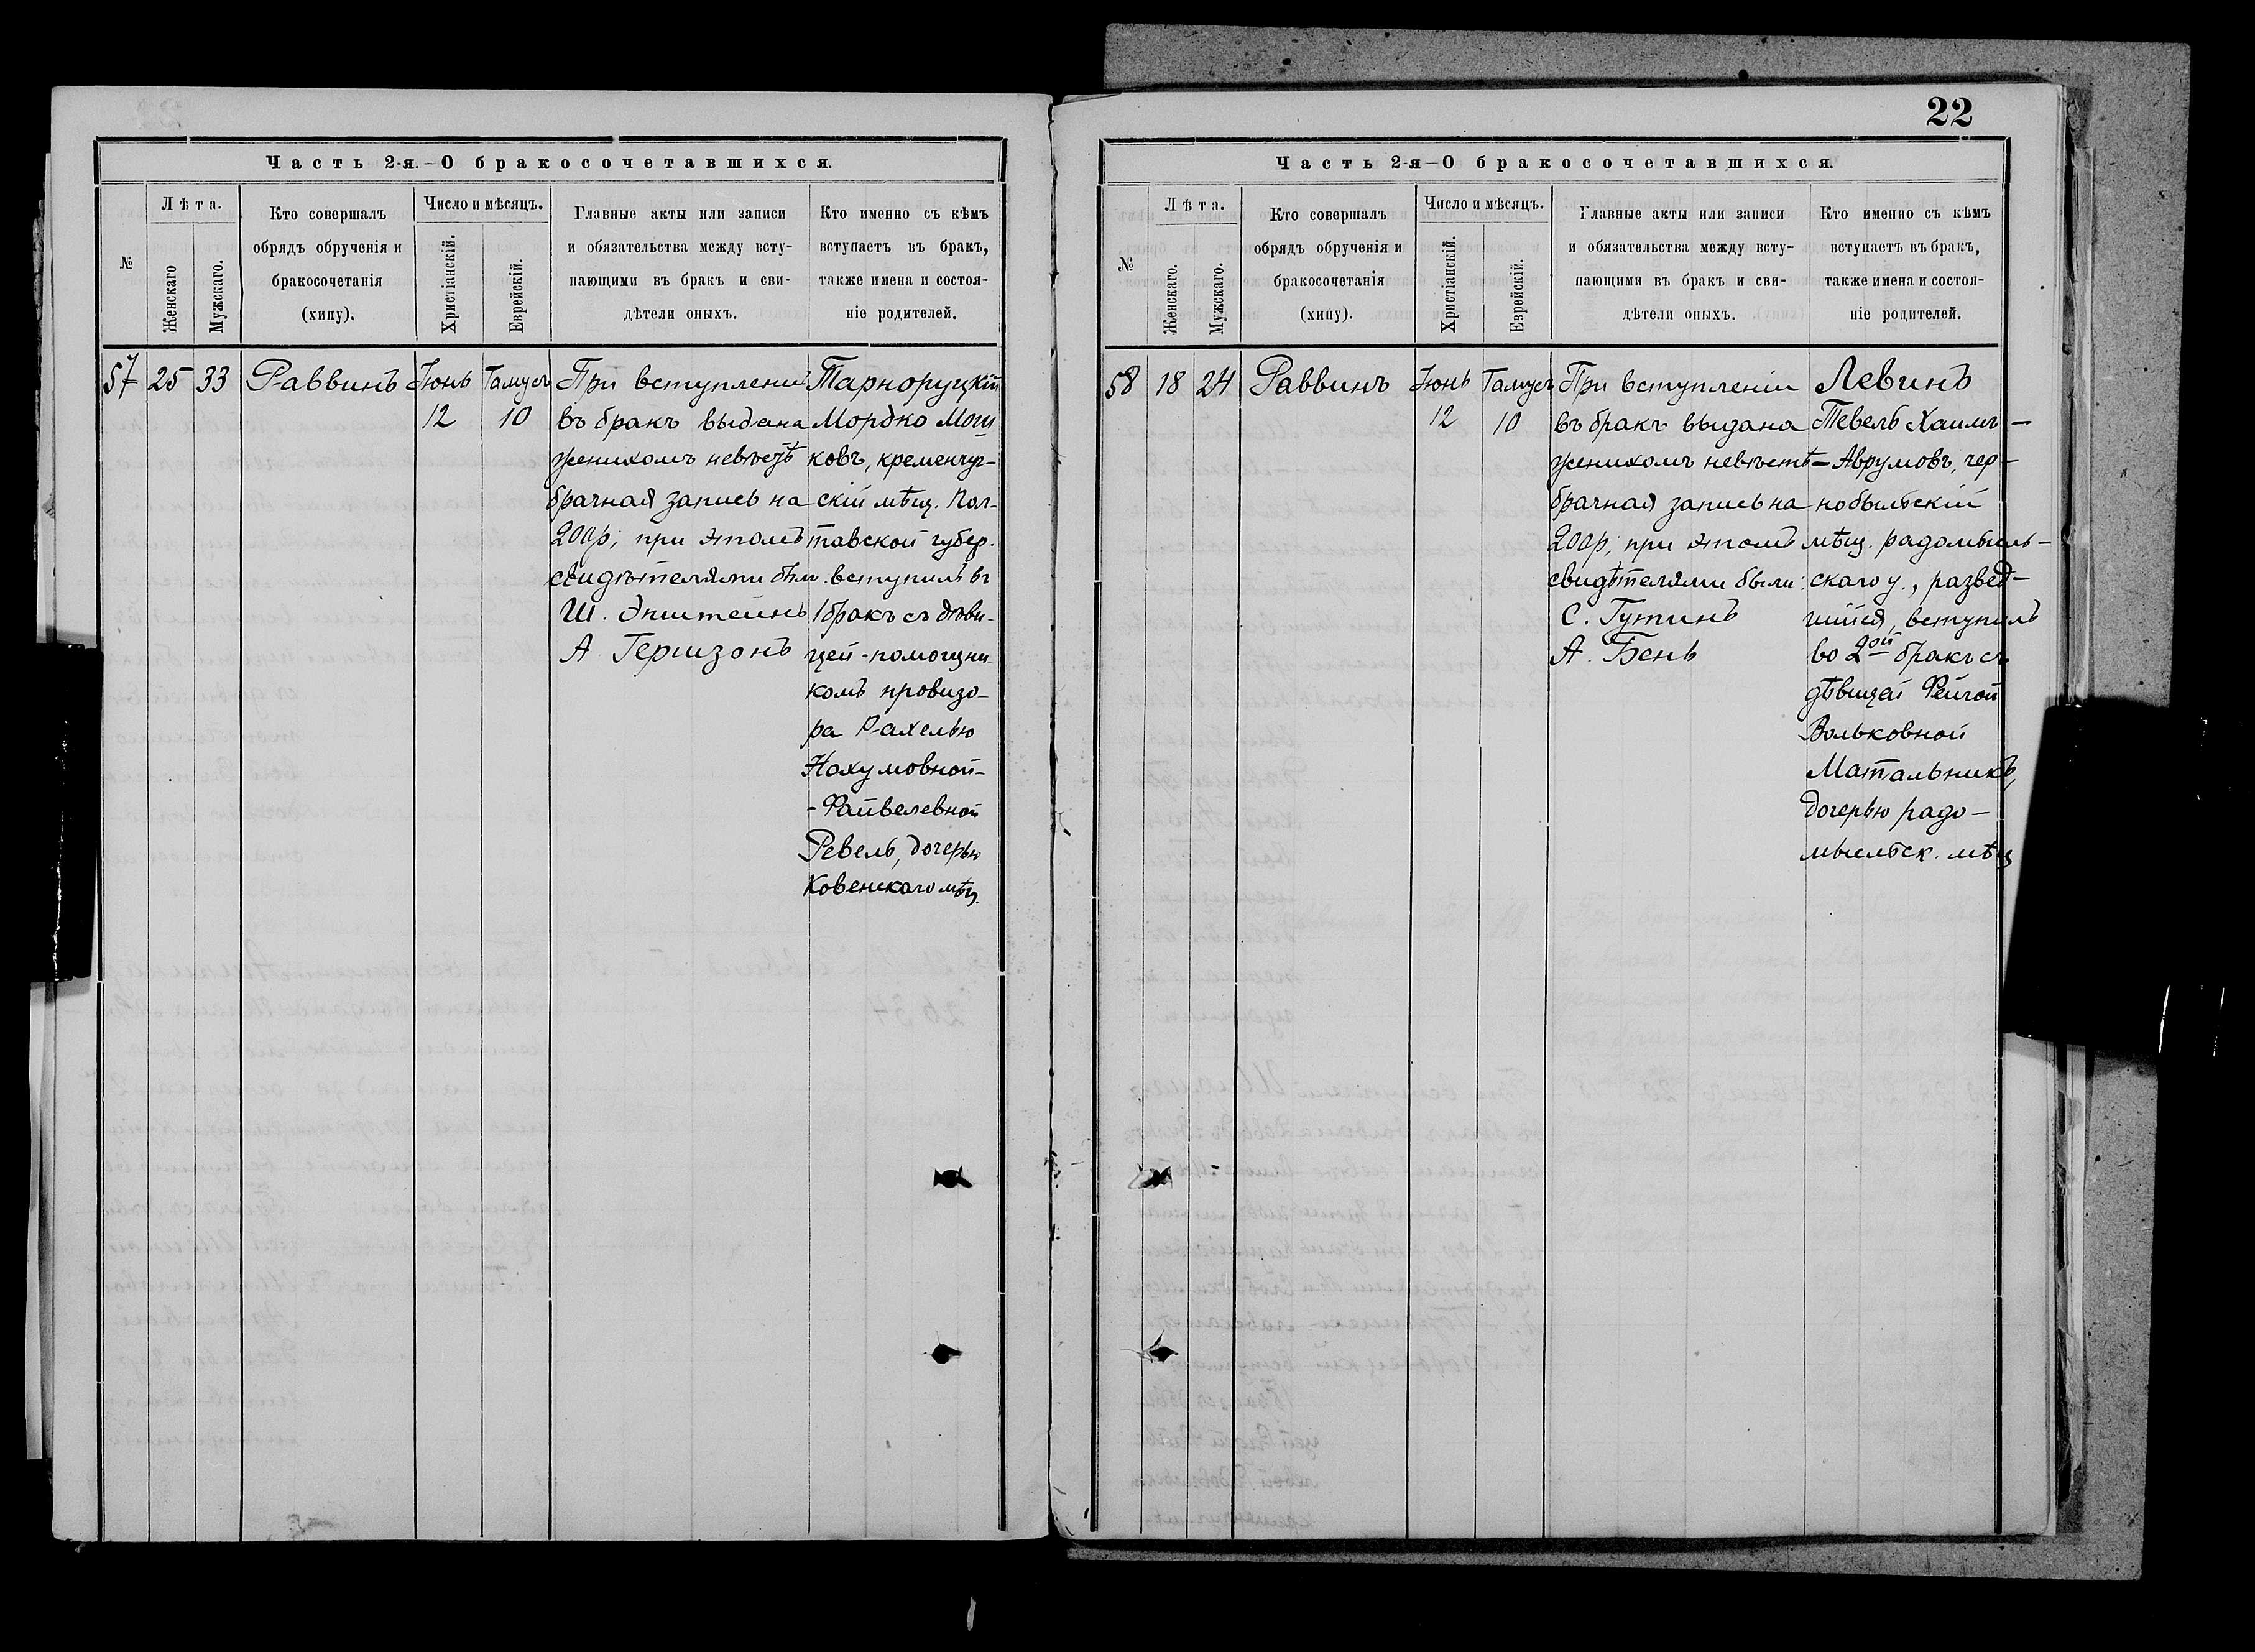 Часть 2-я.—О бракосочетавшихся.
№
Лѣта.
Женскаго
Мужскаго.
Кто совершалъ
обрядъ обрученія и
бракосочетанія
(хипу).
Число и мѣсяцъ.
Христіанскій.
Еврейскій.
Главные акты или записи
и обязательства между всту-
пающими въ бракъ и сви-
дѣтели оныхъ.
Кто именно съ кѣмъ
вступаетъ въ бракъ,
также имена и состоя-
ніе родителей.
57 25 33 Раввинъ Іюнь
12
Тамусъ
10
При вступленіи
въ бракъ выдана
женихомъ невѣстѣ
брачная запись на
200р; при этомъ
свидѣтелями были.
Ш. Эпштейнъ
А Гершзонъ
Тарноруцкій
Мордко Мош
ковъ, кременчуг-
скій мѣщ. Пол-
тавской губер.
вступилъ въ
1 бракъ съ дѣви-
цей - помощни-
комъ провизо-
ра Рахелью
Нохумовной-
-Файвелевной
Ревель, дочерью
Ковенскаго мѣщ.
22
Часть 2-я—О бракосочетавшихся.
№
Лѣта.
Женскаго.
Мужскаго.
Кто совершалъ
обрядъ обрученія и
бракосочетанія
(хипу).
Число и мѣсяцъ.
Христіанскій.
Еврейскій.
Главные акты или записи
и обязательства между всту-
пающими въ бракъ и сви-
дѣтели оныхъ.
Кто именно съ кѣмъ
вступаетъ въ бракъ,
также имена и состоя-
ніе родителей.
58 18 24 Раввинъ Іюнь
12
Тамусъ
10
При вступленіи
въ бракъ выдана
женихомъ невѣстѣ
брачная запись на
200р; при этомъ
свидѣтелями были:
С. Гутинъ
А. Бень
Левинъ
Тевель Хаимъ-
-Аврумовъ, чер-
нобыльскій
мѣщ. радомысль-
скаго у., развед-
шійся, вступилъ
во 2ой бракъ съ
дѣвицей Фейгой
Вольковной
Матальникъ,
дочерью радо-
мысльск. мѣщ